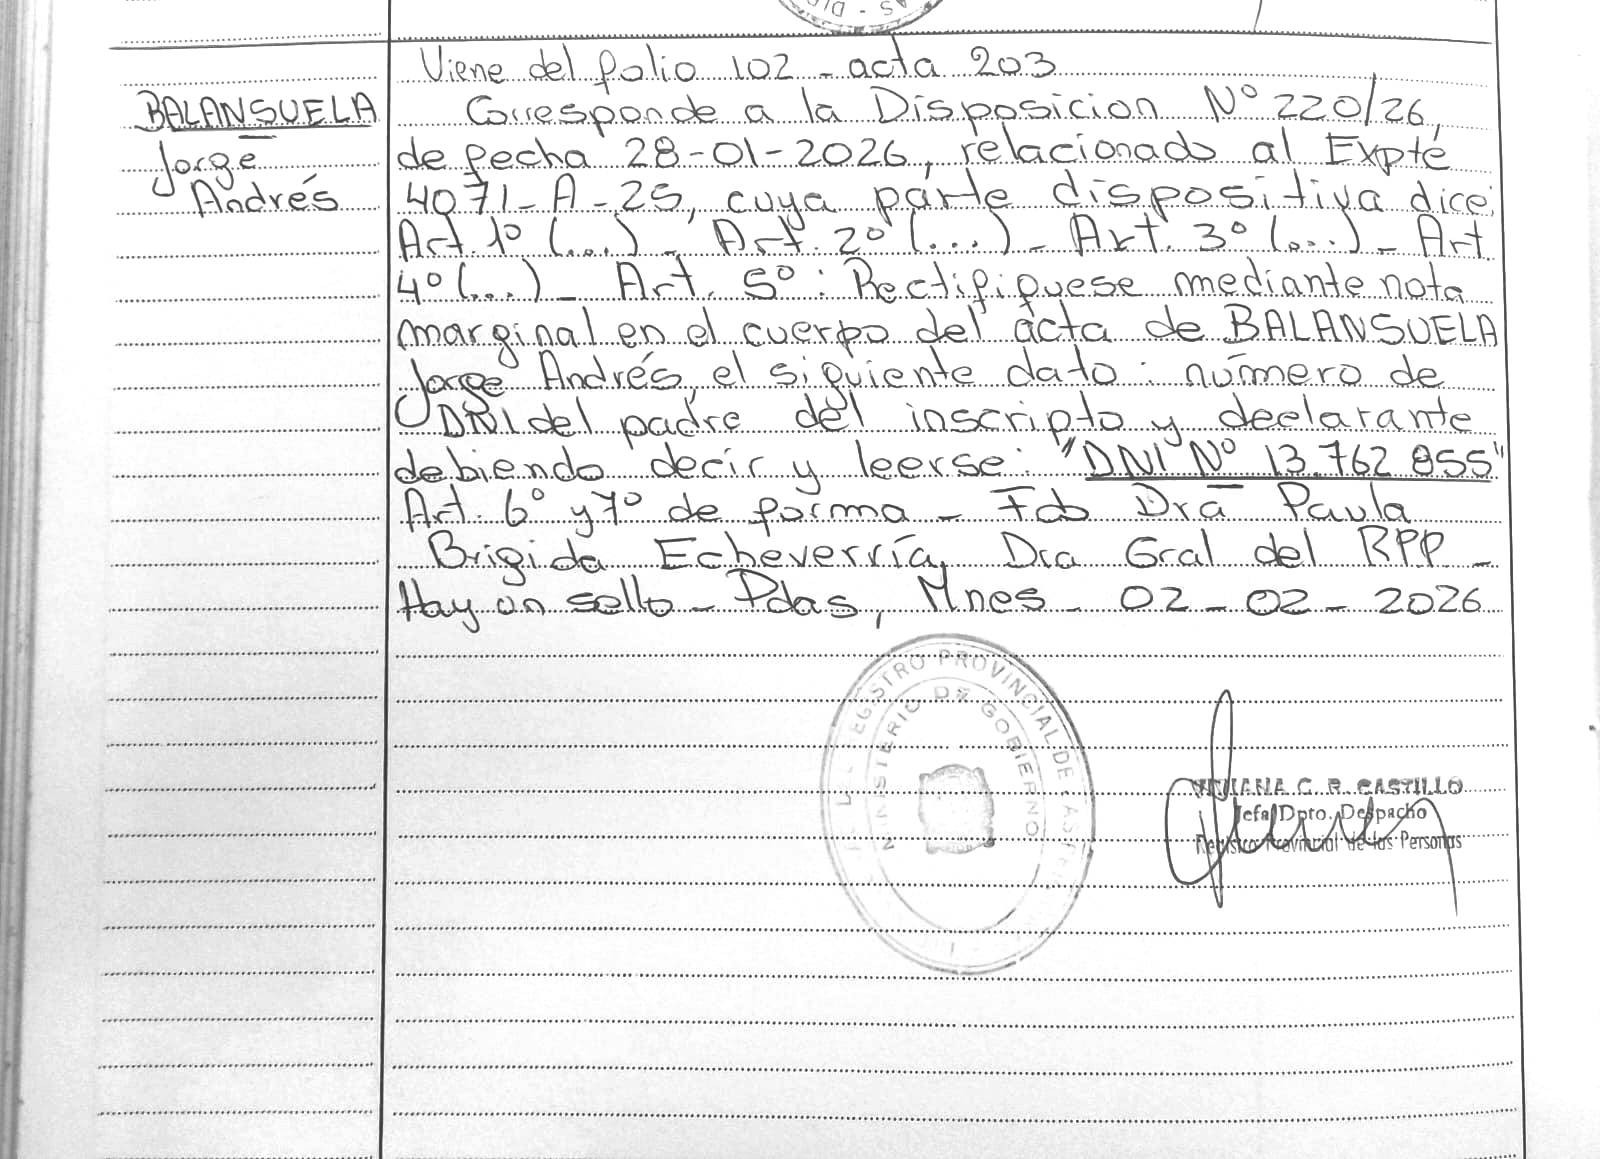 Viene del folio 102 - acta 203
BALANSUELA
Jorge
Andrés
Corresponde a la Disposicion Nº 220/26,
de fecha 28-01-2026, relacionado al Expte
4071-A-25, cuya parte dispositiva dice:
Art. 1º (...) - Art. 2º (...) - Art. 3º (...) - Art
4º (...) - Art. 5º: Rectifiquese mediante nota
marginal en el cuerpo del acta de BALANSUELA
Jorge Andrés, el siguiente dato: número de
DNI del padre del inscripto y declarante
debiendo decir y leerse: "DNI Nº 13.762 855"
Art. 6º y 7º de forma - Fdo Dra Paula
Brigida Echeverría, Dra Gral del RPP -
Hay un sello - Pdas, Mnes - 02-02-2026
REGISTRO PROVINCIAL DE LAS
MINISTERIO DE GOBIERNO
VIVIANA C. R. CASTILLO
Jefa Dpto. Despacho
Registro Provincial de las Personas